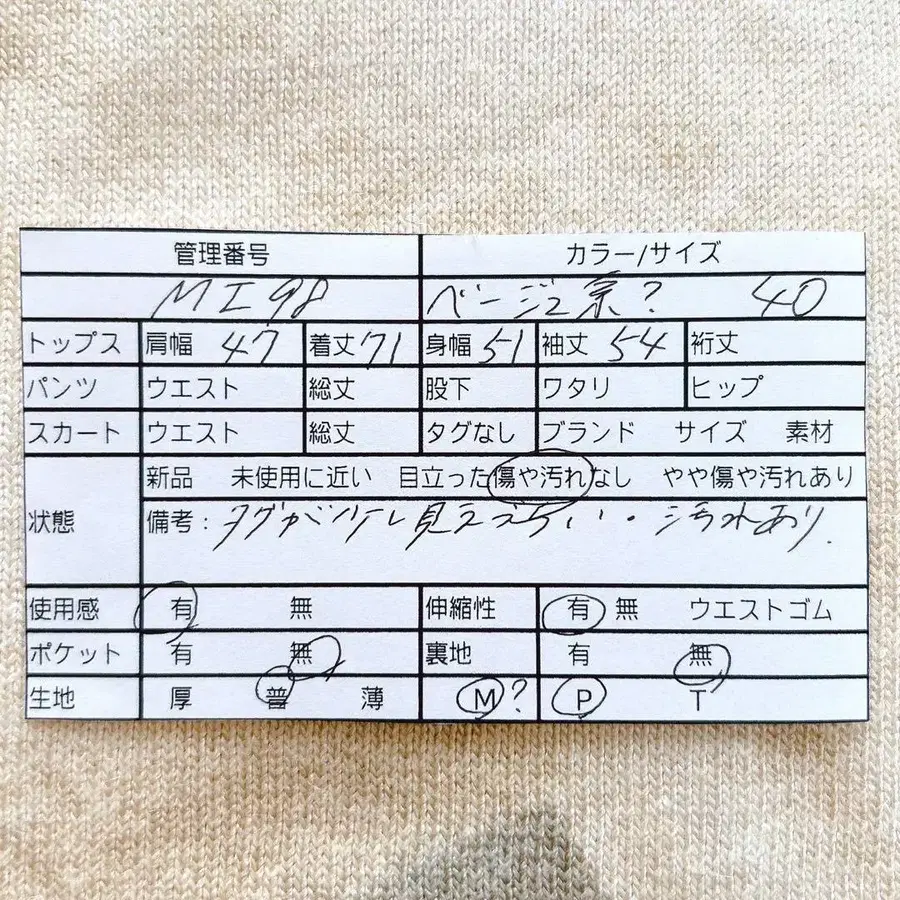 管理番号 カラー/サイズ
MI98 ベージュ系? 40
トップス 肩幅 47 着丈 71 身幅 51 袖丈 54 裄丈
パンツ ウエスト 総丈 股下 ワタリ ヒップ
スカート ウエスト 総丈 タグなし ブランド サイズ 素材
新品 未使用に近い 目立った傷や汚れなし やや傷や汚れあり
状態 備考: タグが少し見えずらい・汚れあり.
使用感 有 無 伸縮性 有 無 ウエストゴム
ポケット 有 無 裏地 有 無
生地 厚 普 薄 M? P T